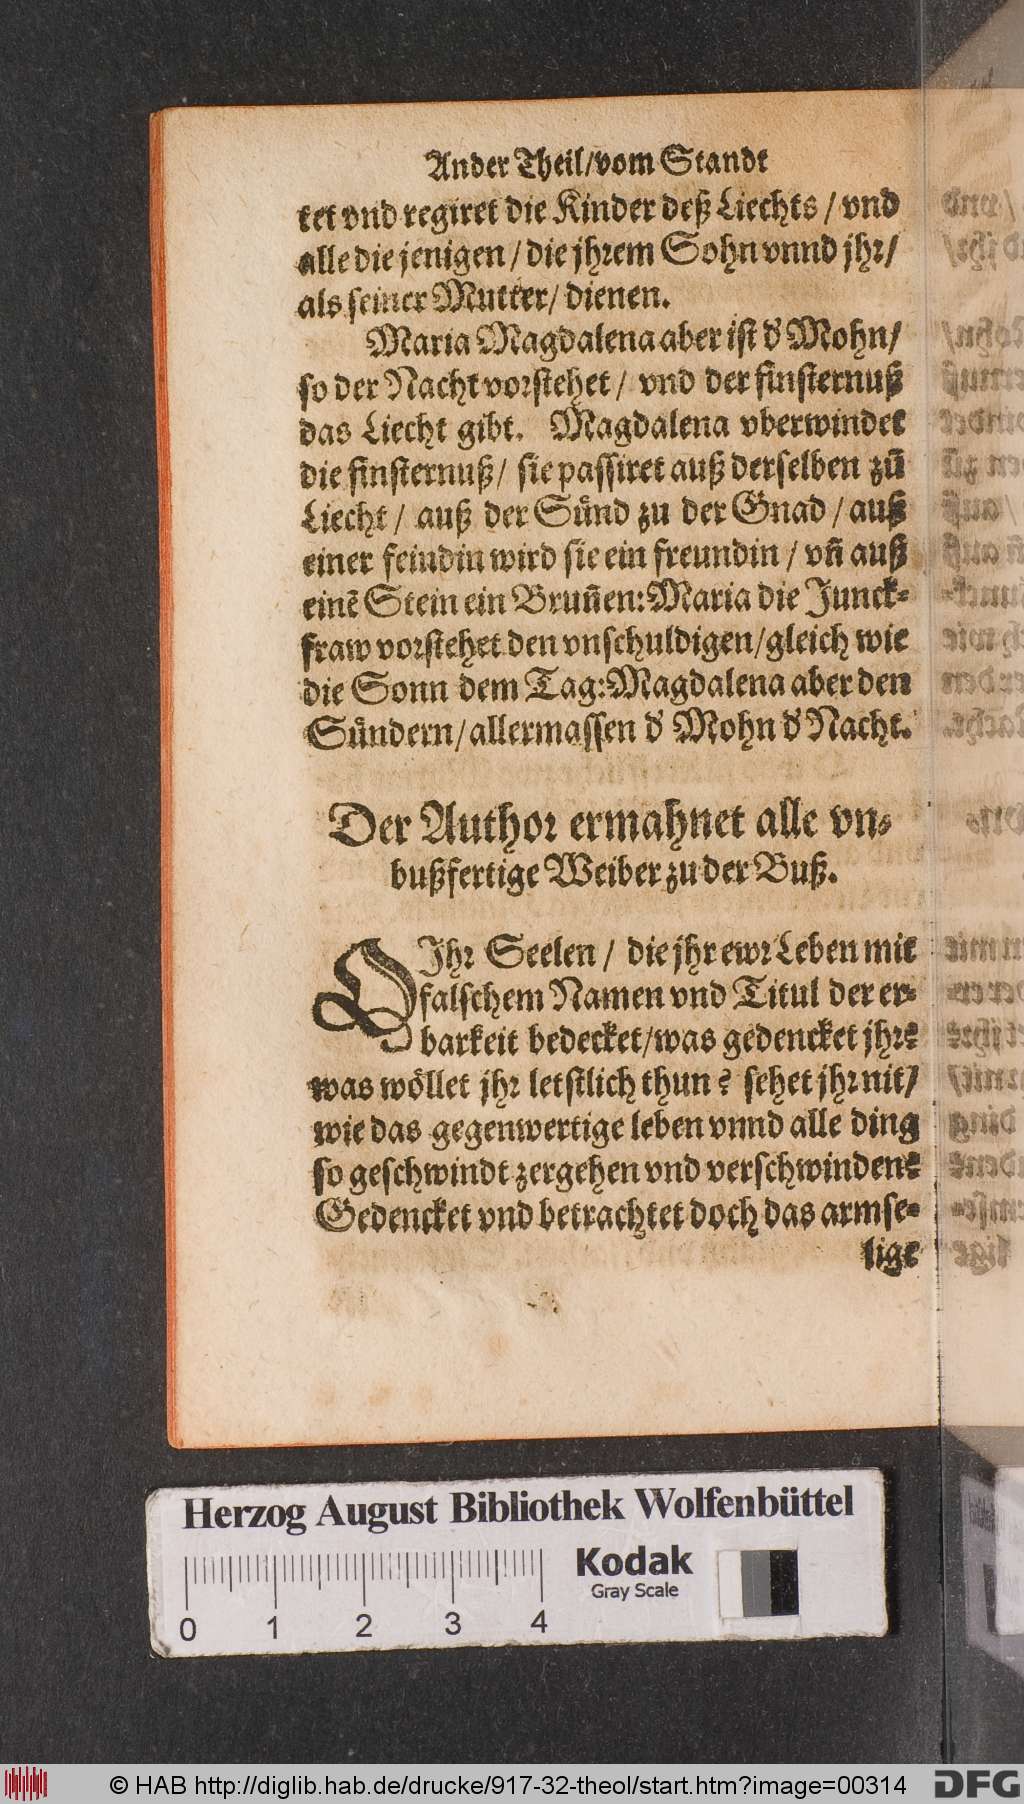 Ander Theil/vom Standt
tet vnd regiret die Kinder deß Liechts / vnd
alle die jenigen / die jhrem Sohn vnnd jhr/
als seiner Mutter/ dienen.
Maria Magdalena aber ist d' Mohn/
so der Nacht vorstehet / vnd der finsternuß
das Liecht gibt. Magdalena vberwindet
die finsternuß/ sie passiret auß derselben zū
Liecht / auß der Sünd zu der Gnad / auß
einer feindin wird sie ein freundin / vn̄ auß
einē Stein ein Brun̄en: Maria die Junck-
fraw vorstehet den vnschuldigen/gleich wie
die Sonn dem Tag: Magdalena aber den
Sündern/allermassen d' Mohn d' Nacht.
Der Author ermahnet alle vn-
bußfertige Weiber zu der Buß.
O Ihr Seelen / die jhr ewr Leben mit
falschem Namen vnd Titul der er-
barkeit bedecket/was gedencket jhr?
was wöllet jhr letstlich thun? sehet jhr nit/
wie das gegenwertige leben vnnd alle ding
so geschwindt zergehen vnd verschwinden?
Gedencket vnd betrachtet doch das armse-
lige
Herzog August Bibliothek Wolfenbüttel
Kodak
Gray Scale
0 1 2 3 4
© HAB http://diglib.hab.de/drucke/917-32-theol/start.htm?image=00314
DFG